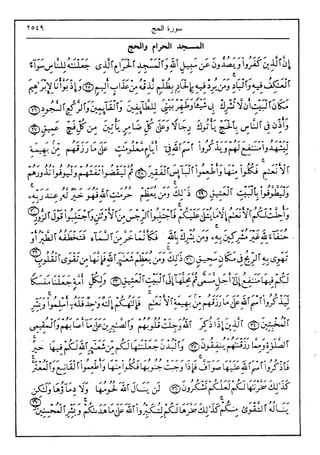 سورة الحج ٢٥٤٩
المسجد الحرام والحج
إِنَّ ٱلَّذِينَ كَفَرُوا۟ وَيَصُدُّونَ عَن سَبِيلِ ٱللَّهِ وَٱلْمَسْجِدِ ٱلْحَرَامِ ٱلَّذِى جَعَلْنَٰهُ لِلنَّاسِ سَوَآءً
ٱلْعَٰكِفُ فِيهِ وَٱلْبَادِ وَمَن يُرِدْ فِيهِ بِإِلْحَادٍۭ بِظُلْمٍ نُّذِقْهُ مِنْ عَذَابٍ أَلِيمٍ ﴿٢٥﴾ وَإِذْ بَوَّأْنَا لِإِبْرَٰهِيمَ
مَكَانَ ٱلْبَيْتِ أَن لَّا تُشْرِكْ بِى شَيْـًٔا وَطَهِّرْ بَيْتِىَ لِلطَّآئِفِينَ وَٱلْقَآئِمِينَ وَٱلرُّكَّعِ ٱلسُّجُودِ ﴿٢٦﴾
وَأَذِّن فِى ٱلنَّاسِ بِٱلْحَجِّ يَأْتُوكَ رِجَالًا وَعَلَىٰ كُلِّ ضَامِرٍ يَأْتِينَ مِن كُلِّ فَجٍّ عَمِيقٍ ﴿٢٧﴾
لِّيَشْهَدُوا۟ مَنَٰفِعَ لَهُمْ وَيَذْكُرُوا۟ ٱسْمَ ٱللَّهِ فِىٓ أَيَّامٍ مَّعْلُومَٰتٍ عَلَىٰ مَا رَزَقَهُم مِّنۢ بَهِيمَةِ
ٱلْأَنْعَٰمِ فَكُلُوا۟ مِنْهَا وَأَطْعِمُوا۟ ٱلْبَآئِسَ ٱلْفَقِيرَ ﴿٢٨﴾ ثُمَّ لْيَقْضُوا۟ تَفَثَهُمْ وَلْيُوفُوا۟ نُذُورَهُمْ
وَلْيَطَّوَّفُوا۟ بِٱلْبَيْتِ ٱلْعَتِيقِ ﴿٢٩﴾ ذَٰلِكَ وَمَن يُعَظِّمْ حُرُمَٰتِ ٱللَّهِ فَهُوَ خَيْرٌ لَّهُۥ عِندَ رَبِّهِۦ
وَأُحِلَّتْ لَكُمُ ٱلْأَنْعَٰمُ إِلَّا مَا يُتْلَىٰ عَلَيْكُمْ فَٱجْتَنِبُوا۟ ٱلرِّجْسَ مِنَ ٱلْأَوْثَٰنِ وَٱجْتَنِبُوا۟ قَوْلَ ٱلزُّورِ ﴿٣٠﴾
حُنَفَآءَ لِلَّهِ غَيْرَ مُشْرِكِينَ بِهِۦ وَمَن يُشْرِكْ بِٱللَّهِ فَكَأَنَّمَا خَرَّ مِنَ ٱلسَّمَآءِ فَتَخْطَفُهُ ٱلطَّيْرُ أَوْ
تَهْوِى بِهِ ٱلرِّيحُ فِى مَكَانٍ سَحِيقٍ ﴿٣١﴾ ذَٰلِكَ وَمَن يُعَظِّمْ شَعَٰٓئِرَ ٱللَّهِ فَإِنَّهَا مِن تَقْوَى ٱلْقُلُوبِ ﴿٣٢﴾
لَكُمْ فِيهَا مَنَٰفِعُ إِلَىٰٓ أَجَلٍ مُّسَمًّى ثُمَّ مَحِلُّهَآ إِلَى ٱلْبَيْتِ ٱلْعَتِيقِ ﴿٣٣﴾ وَلِكُلِّ أُمَّةٍ جَعَلْنَا مَنسَكًا
لِّيَذْكُرُوا۟ ٱسْمَ ٱللَّهِ عَلَىٰ مَا رَزَقَهُم مِّنۢ بَهِيمَةِ ٱلْأَنْعَٰمِ فَإِلَٰهُكُمْ إِلَٰهٌ وَٰحِدٌ فَلَهُۥٓ أَسْلِمُوا۟ وَبَشِّرِ
ٱلْمُخْبِتِينَ ﴿٣٤﴾ ٱلَّذِينَ إِذَا ذُكِرَ ٱللَّهُ وَجِلَتْ قُلُوبُهُمْ وَٱلصَّٰبِرِينَ عَلَىٰ مَآ أَصَابَهُمْ وَٱلْمُقِيمِى
ٱلصَّلَوٰةِ وَمِمَّا رَزَقْنَٰهُمْ يُنفِقُونَ ﴿٣٥﴾ وَٱلْبُدْنَ جَعَلْنَٰهَا لَكُم مِّن شَعَٰٓئِرِ ٱللَّهِ لَكُمْ فِيهَا خَيْرٌ
فَٱذْكُرُوا۟ ٱسْمَ ٱللَّهِ عَلَيْهَا صَوَآفَّ فَإِذَا وَجَبَتْ جُنُوبُهَا فَكُلُوا۟ مِنْهَا وَأَطْعِمُوا۟ ٱلْقَانِعَ وَٱلْمُعْتَرَّ
كَذَٰلِكَ سَخَّرْنَٰهَا لَكُمْ لَعَلَّكُمْ تَشْكُرُونَ ﴿٣٦﴾ لَن يَنَالَ ٱللَّهَ لُحُومُهَا وَلَا دِمَآؤُهَا وَلَٰكِن
يَنَالُهُ ٱلتَّقْوَىٰ مِنكُمْ كَذَٰلِكَ سَخَّرَهَا لَكُمْ لِتُكَبِّرُوا۟ ٱللَّهَ عَلَىٰ مَا هَدَىٰكُمْ وَبَشِّرِ ٱلْمُحْسِنِينَ ﴿٣٧﴾